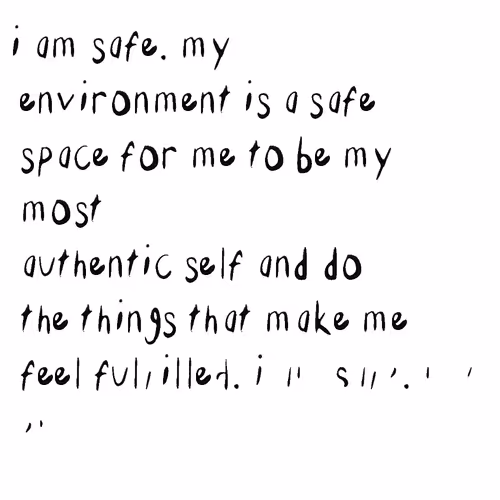 i am safe. my
environment is a safe
space for me to be my
most
authentic self and do
the things that make me
feel fulfilled. i